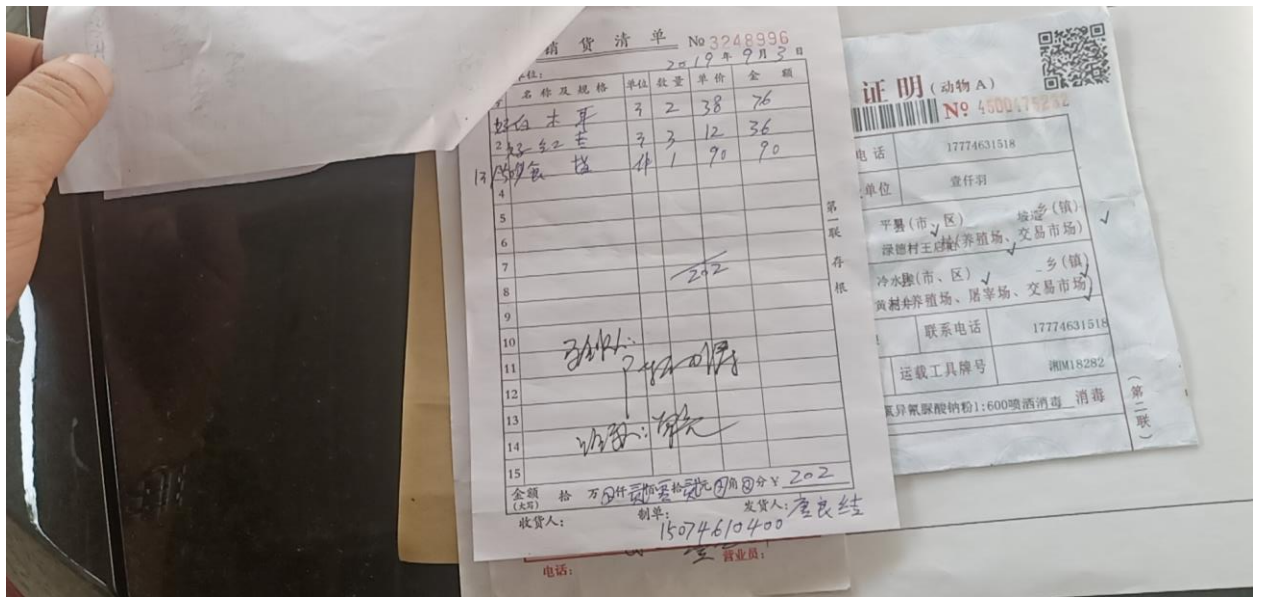 销货清单 No 3248996
2019年9月3日
名称及规格 单位 数量 单价 金额
好白木耳 2 38 76
2 3 12 36
食 件 1 90 90
4
5
6
7
202
8
9
10
11
12
13
14
15
金额(大写) 拾 万 仟贰佰零拾贰元 角 分 ¥ 202
收货人: 制单: 发货人:唐良结
15074610400
第一联 存根
电话: 营业员:
证明(动物A)
No 4500475232
电话 17774631518
单位 壹仟羽
平 县(市、区) 乡(镇)
村(养殖场、交易市场)
冷水 (市、区) 乡(镇)
养殖场、屠宰场、交易市场)
联系电话 17774631518
运载工具牌号 湘M18282
氯异氰脲酸钠粉1:600喷洒消毒 消毒
(第二联)